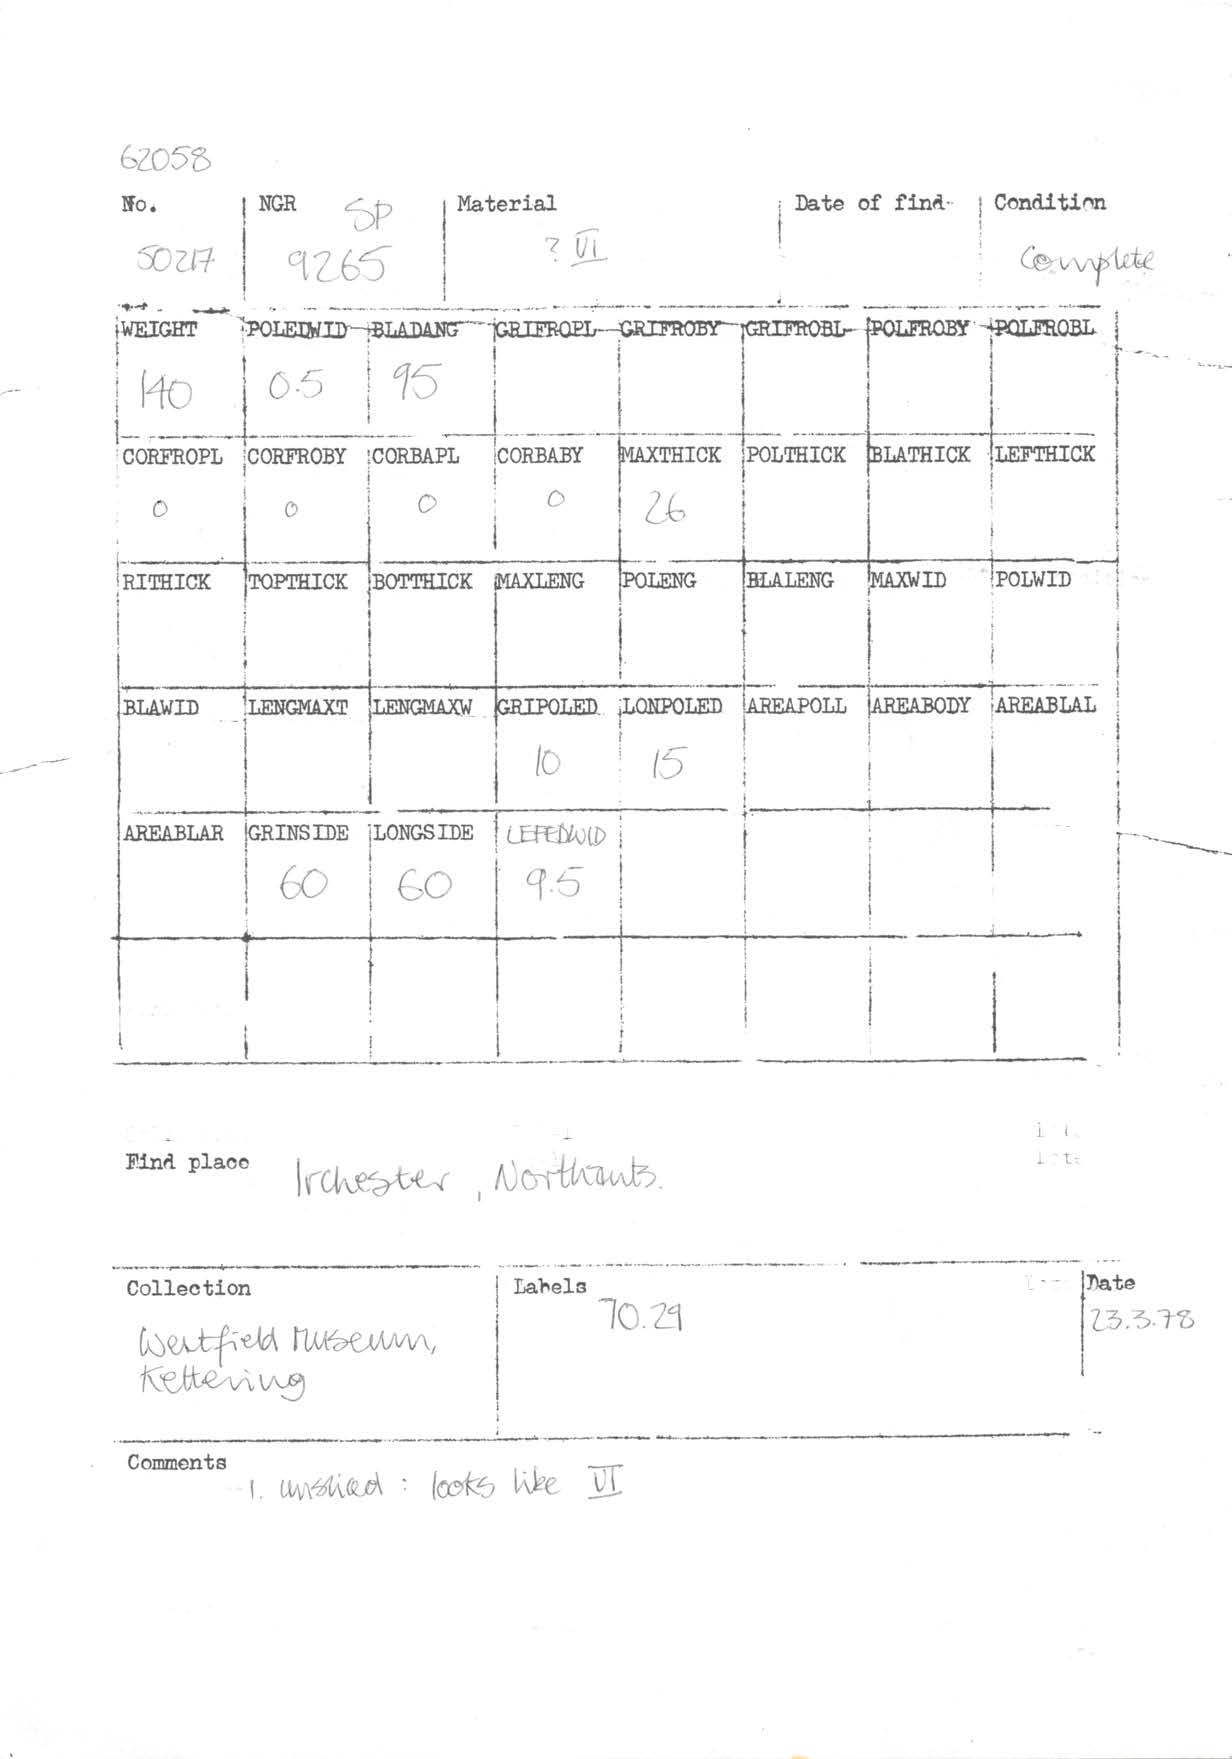 62058
No. NGR SP Material Date of find Condition
50217 9265 ? VI Complete
WEIGHT POLEDWID BLADANG GRIFROPL GRIFROBY GRIFROBL POLFROBY POLFROBL
140 0.5 95
CORFROPL CORFROBY CORBAPL CORBABY MAXTHICK POLTHICK BLATHICK LEFTHICK
0 0 0 0 26
RITHICK TOPTHICK BOTTHICK MAXLENG POLENG BLALENG MAXWID POLWID
BLAWID LENGMAXT LENGMAXW GRIPOLED LONPOLED AREAPOLL AREABODY AREABLAL
10 15
AREABLAR GRINSIDE LONGSIDE LEFEDWID
60 60 9.5
Find place Irchester, Northants.
Collection Labels Date
70.29 23.3.78
Westfield Museum,
Kettering
Comments
1. unsliced : looks like VI